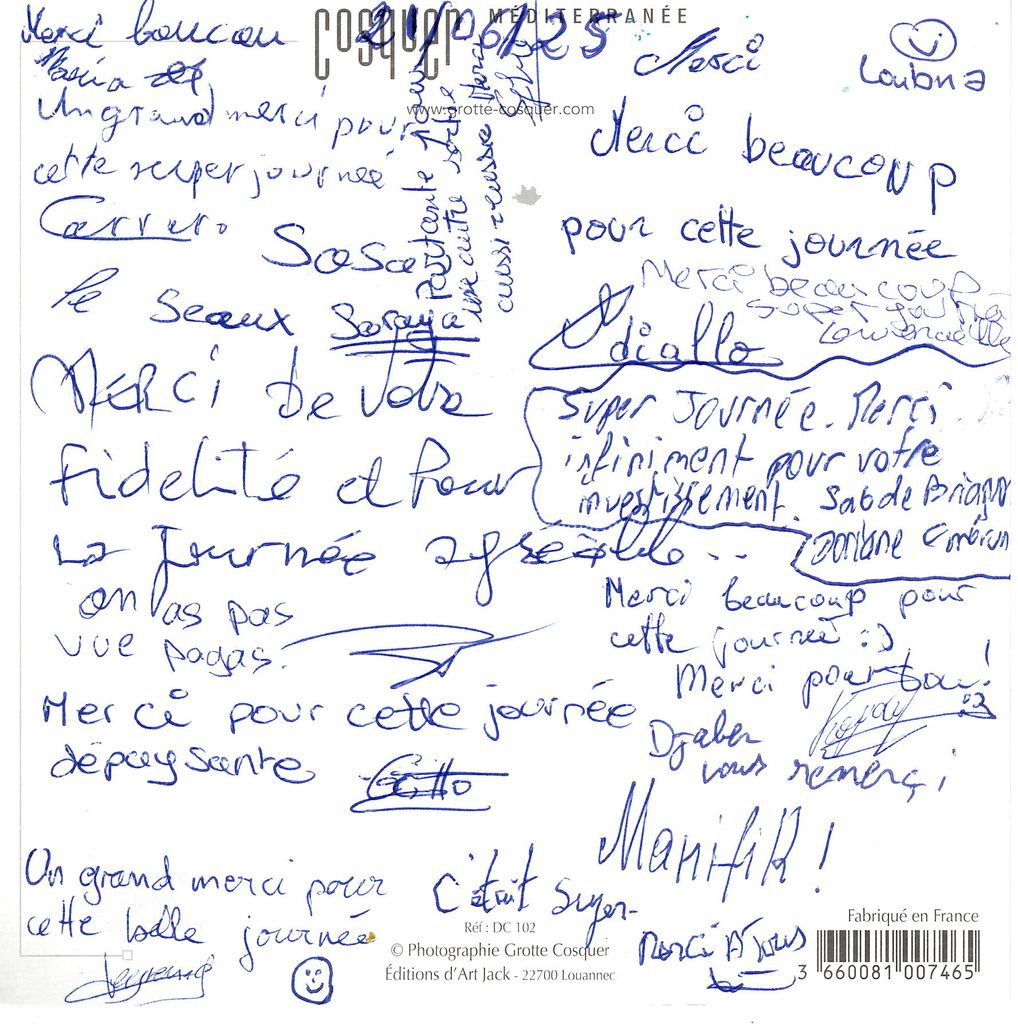 Cosquer MÉDITERRANÉE
21/06/25
www.grotte-cosquer.com
Merci boucou
Maria
Un grand merci pour
cette super journée
Sosa
le seaux Soraya
Partante pour
une autre sortie
aussi réussie Merci
MERCI De votre
fidelité et Pour
La Journée agréable...
on as pas
vue pagas.
Merci pour cette journée
dépaysante
Un grand merci pour
cette belle journée
Merci
Loubna
Merci beaucoup
pour cette journée
diallo
Merci beaucoup
super journée
Super Journée. Merci.
infiniment pour votre
investissement.
Merci beaucoup pour
cette journée :)
Merci pour tou!
Djaber
vous remerçi
Manifik!
C'était super
Merci A Tous
Réf : DC 102
© Photographie Grotte Cosquer
Éditions d'Art Jack - 22700 Louannec
Fabriqué en France
3 660081 007465